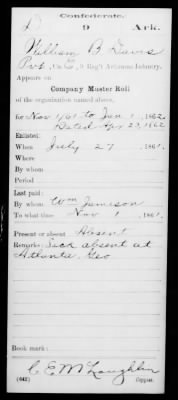 Confederate.
D 9 Ark.
William B Davis
Pvt, Co., 9 Reg't Arkansas Infantry.
Appears on
Company Muster Roll
of the organization named above,
for Nov 1/61 to Jan 1, 1862.
Dated Apr 23, 1862
Enlisted:
When July 27, 1861.
Where
By whom
Period
Last paid:
By whom Wm Jamison
To what time Nov 1, 1861.
Present or absent Absent
Remarks: Sick absent at
Atlanta, Geo
Book mark:
C. E. McLaughlin
(642) Copyist.